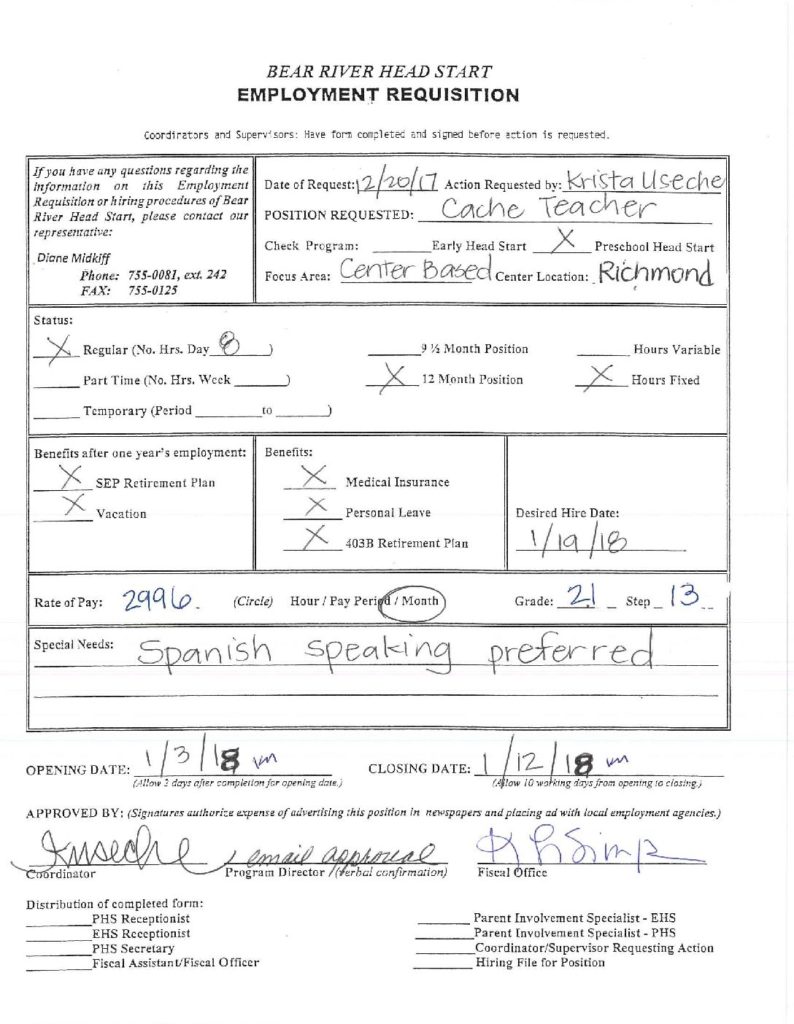 BEAR RIVER HEAD START
EMPLOYMENT REQUISITION
Coordinators and Supervisors: Have form completed and signed before action is requested.
If you have any questions regarding the
information on this Employment
Requisition or hiring procedures of Bear
River Head Start, please contact our
representative:
Diane Midkiff
Phone: 755-0081, ext. 242
FAX: 755-0125
Date of Request: 12/20/17 Action Requested by: Krista Useche
POSITION REQUESTED: Cache Teacher
Check Program: ______ Early Head Start X Preschool Head Start
Focus Area: Center Based Center Location: Richmond
Status:
X Regular (No. Hrs. Day 8 ) ______ 9 ½ Month Position ______ Hours Variable
______ Part Time (No. Hrs. Week ______) X 12 Month Position X Hours Fixed
______ Temporary (Period ______ to ______)
Benefits after one year's employment:
X SEP Retirement Plan
X Vacation
Benefits:
X Medical Insurance
X Personal Leave
X 403B Retirement Plan
Desired Hire Date:
1/19/18
Rate of Pay: 2996. (Circle) Hour / Pay Period / Month Grade: 21 Step 13
Special Needs: Spanish speaking preferred
OPENING DATE: 1/3/18 CLOSING DATE: 1/12/18
(Allow 2 days after completion for opening date.) (Allow 10 working days from opening to closing.)
APPROVED BY: (Signatures authorize expense of advertising this position in newspapers and placing ad with local employment agencies.)
KUseche email approval
Coordinator Program Director / (Verbal confirmation) Fiscal Office
Distribution of completed form:
______ PHS Receptionist ______ Parent Involvement Specialist - EHS
______ EHS Receptionist ______ Parent Involvement Specialist - PHS
______ PHS Secretary ______ Coordinator/Supervisor Requesting Action
______ Fiscal Assistant/Fiscal Officer ______ Hiring File for Position